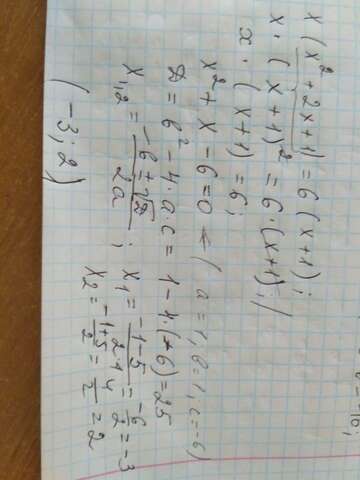 x(x² + 2x + 1) = 6(x + 1);
x · (x + 1)² = 6 · (x + 1); /
x · (x + 1) = 6;
x² + x - 6 = 0 < ( a = 1, b = 1; c = -6)
D = b² - 4 · a · c = 1 - 4 · (-6) = 25
x₁,₂ = (-b ± √D)/(2a); x₁ = (-1 - 5)/(2 · 1) = -6/2 = -3
x₂ = (-1 + 5)/2 = 4/2 = 2
(-3; 2)